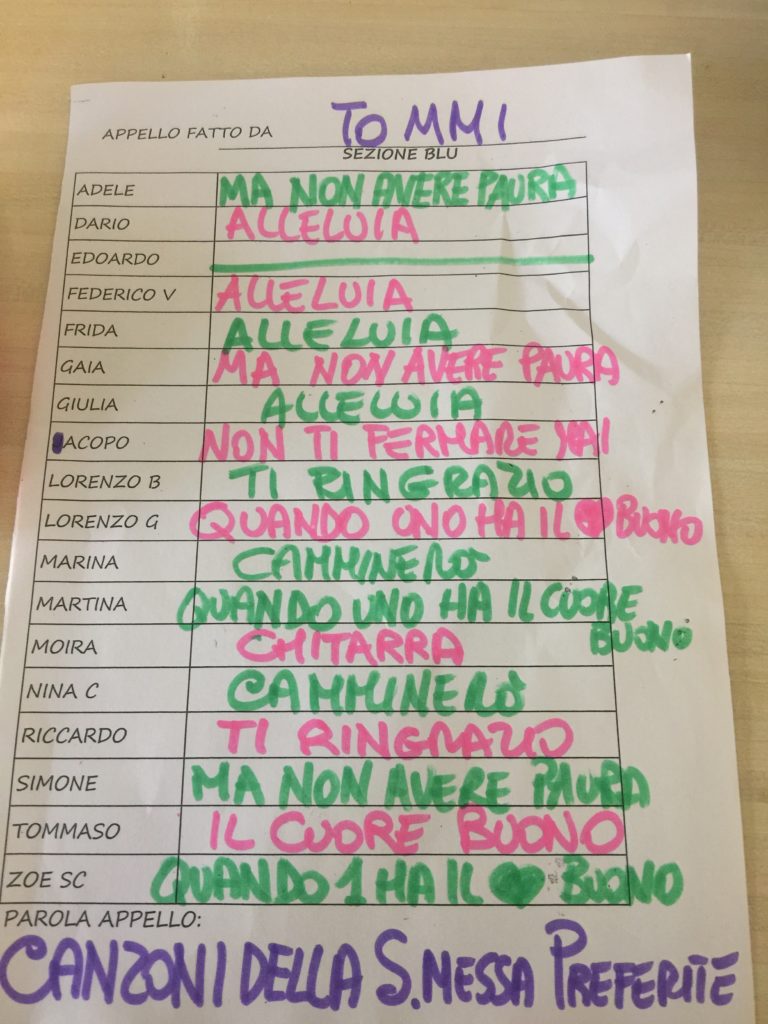 APPELLO FATTO DA TOMMI
SEZIONE BLU
ADELE MA NON AVERE PAURA
DARIO ALLELUIA
EDOARDO
FEDERICO V ALLELUIA
FRIDA ALLELUIA
GAIA MA NON AVERE PAURA
GIULIA ALLELUIA
JACOPO NON TI FERMARE MAI
LORENZO B TI RINGRAZIO
LORENZO G QUANDO UNO HA IL ❤ BUONO
MARINA CAMMINERÒ
MARTINA QUANDO UNO HA IL CUORE
BUONO
MOIRA CHITARRA
NINA C CAMMINERÒ
RICCARDO TI RINGRAZIO
SIMONE MA NON AVERE PAURA
TOMMASO IL CUORE BUONO
ZOE SC QUANDO 1 HA IL ❤ BUONO
PAROLA APPELLO:
CANZONI DELLA S.MESSA PREFERITE